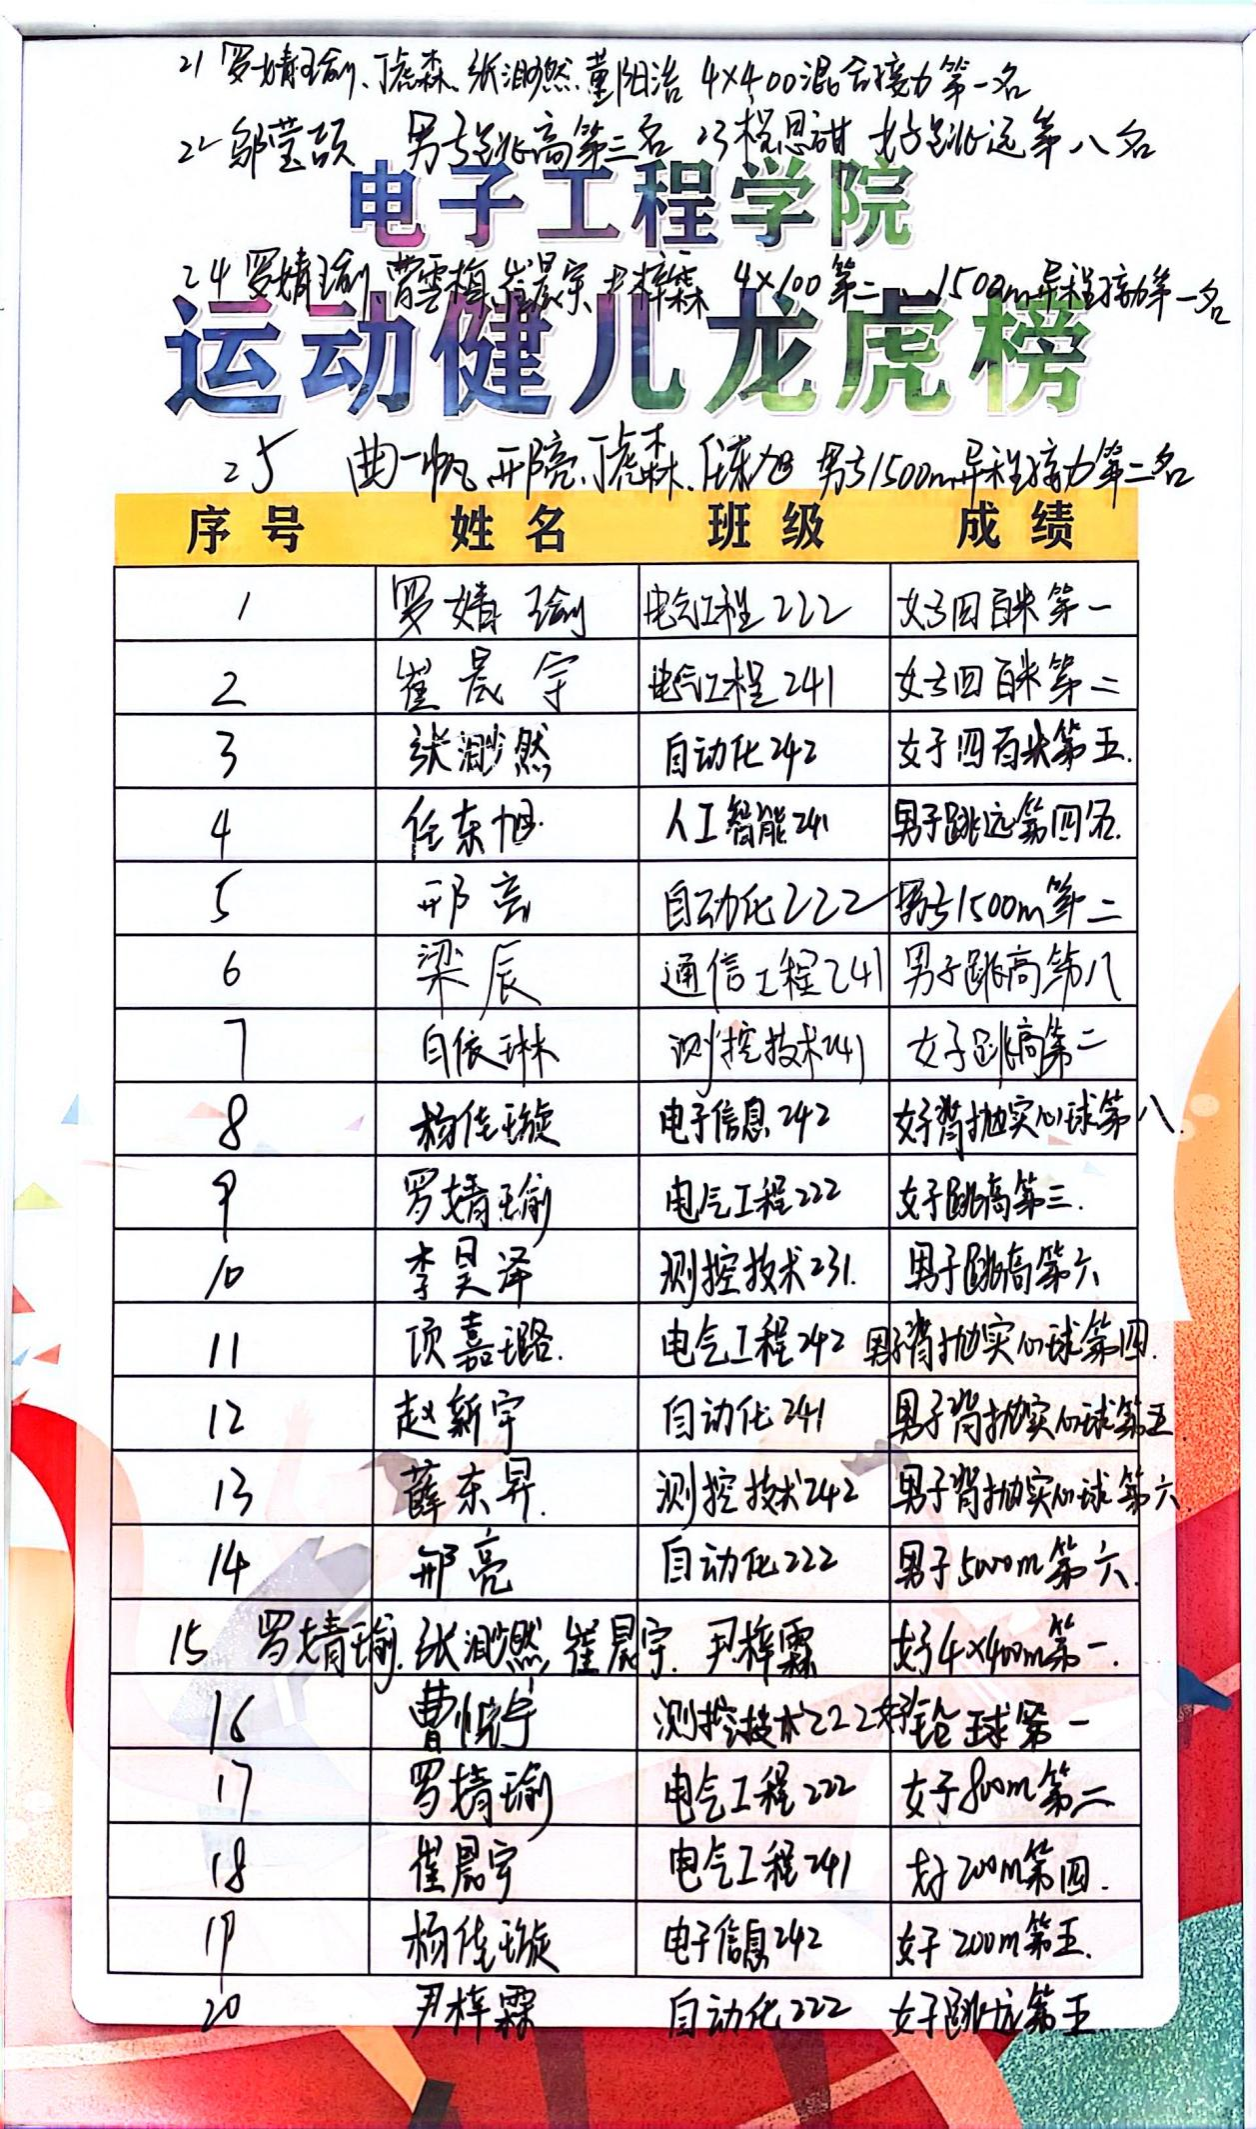 21 罗婧瑜、丁虎森、张渺然、董阳浩 4×400混合接力第一名
22 邬莹颉 男子跳高第三名 23 程思甜 女子跳远第八名
电子工程学院
24 罗婧瑜、曹雲植、崔晨宇、尹梓霖 4×100第二、1500m异程接力第一名
运动健儿龙虎榜
25 曲一帆、邢亮、丁虎森、任东旭 男子1500m异程接力第二名
序号 姓名 班级 成绩
1 罗婧瑜 电气工程222 女子四百米第一
2 崔晨宇 电气工程241 女子四百米第二
3 张渺然 自动化242 女子四百米第五.
4 任东旭. 人工智能241 男子跳远第四名.
5 邢亮 自动化222 男子1500m第二
6 梁辰 通信工程241 男子跳高第八
7 白依琳 测控技术241 女子跳高第二
8 杨佳璇 电子信息242 女子背抛实心球第八.
9 罗婧瑜 电气工程222 女子跳高第三.
10 李昊泽 测控技术231. 男子跳高第六
11 项嘉璐. 电气工程242 男子背抛实心球第四.
12 赵新宇 自动化241 男子背抛实心球第五
13 薛东昇. 测控技术242 男子背抛实心球第六.
14 邢亮 自动化222 男子5000m第六.
15 罗婧瑜.张渺然,崔晨宇.尹梓霖 女子4×400m第一.
16 曹悦宁 测控技术222 女子铅球第一
17 罗婧瑜 电气工程222 女子800m第二
18 崔晨宇 电气工程241 女子200m第四.
19 杨佳璇 电子信息242 女子200m第五.
20 尹梓霖 自动化222 女子跳远第五